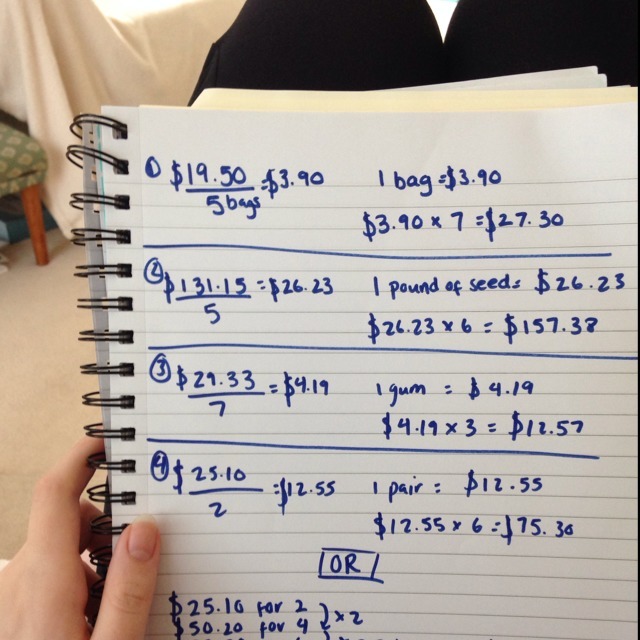 ① $19.50 = $3.90 1 bag = $3.90
5 bags
$3.90 x 7 = $27.30
② $131.15 = $26.23 1 pound of seeds $26.23
5
$26.23 x 6 = $157.38
③ $29.33 = $4.19 1 gum = $4.19
7
$4.19 x 3 = $12.57
④ $25.10 = $12.55 1 pair = $12.55
2
$12.55 x 6 = $75.30
OR
$25.10 for 2 } x2
$50.20 for 4